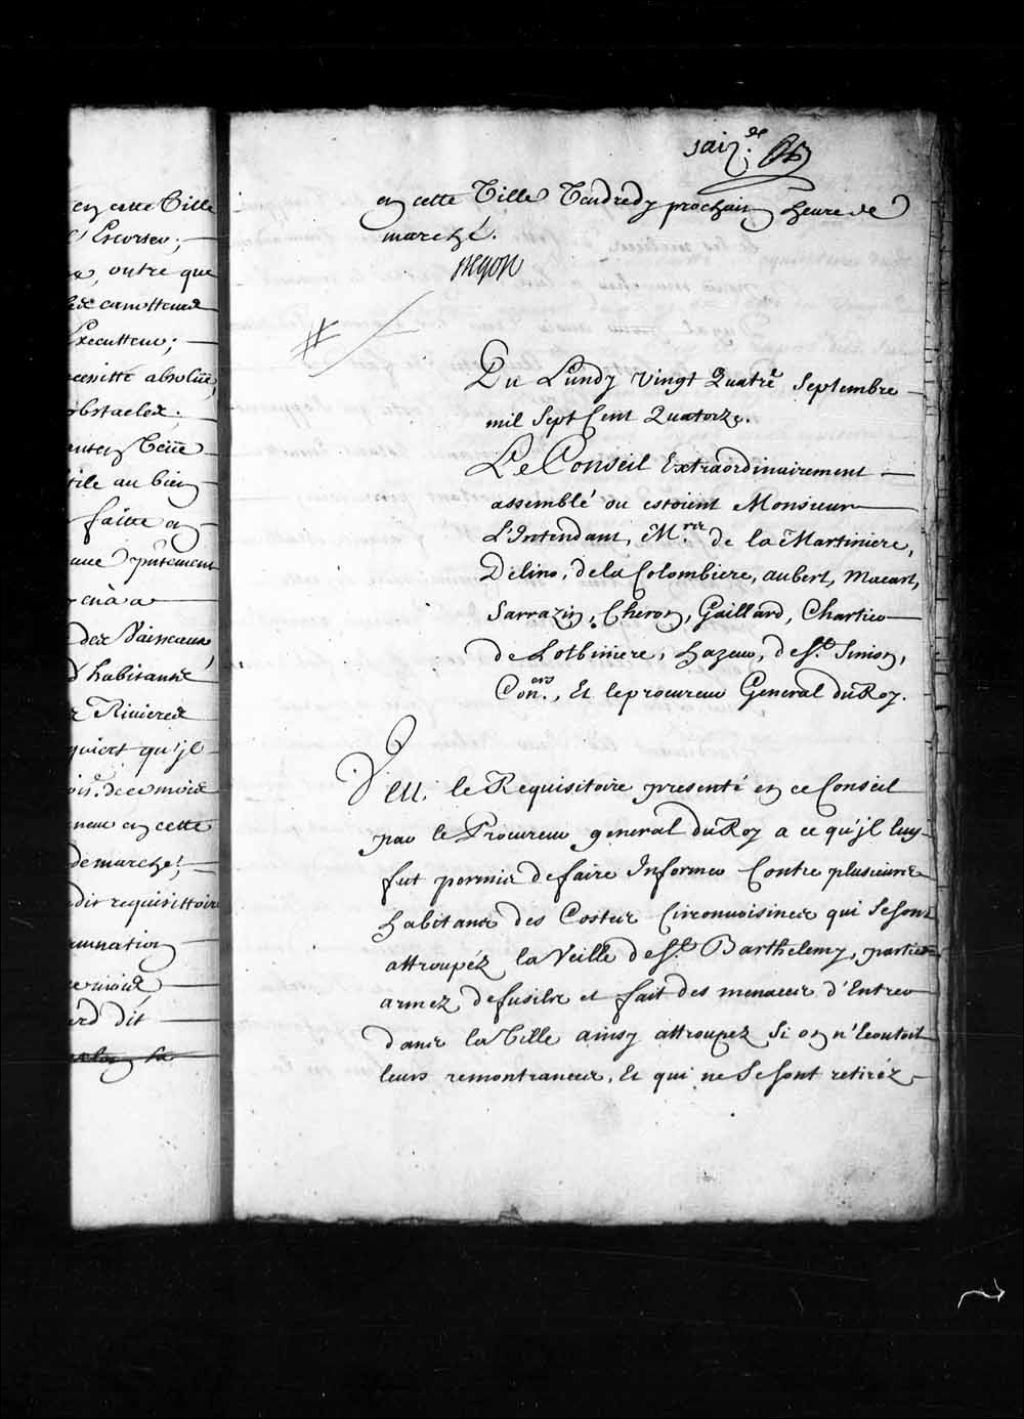 en cette Ville
Executteur;
necessitté absolüe,
obstacles;
utile au bien
faitte en
des Vaisseaux
d'habitans
Rivieres
qu'jl
de ce mois
en cette
de marché;
dit requisittoire
dit
saiz.e
en cette Ville Vendredy prochain heure de
marché.
Begon
#
Du Lundy vingt Quatre Septembre
mil Sept Cent Quatorze.
Le Conseil Extraordinairement
assemblé ou estoient Monsieur
L'Intendant, M.rs de la Martiniere,
Delino, de la Colombiere, aubert, Macart,
Sarrazin, Cheron, Gaillard, Chartier
de Lotbiniere, hazeur, de St. Simon,
Con.ers, Et le procureur General du Roy.
Veu le Requisitoire presenté en ce Conseil
par le Procureur general du Roy a ce qu'jl luy
fut permis de faire Informer Contre plusieurs
habitans des Costes Circonvoisines qui se sont
attroupéz la Veille de St. Barthelemy, partie
armez de fusils et fait des menaces d'Entrer
dans la Ville ainsy attroupez Si on n'Ecoutoit
leurs remontrances, Et qui ne se sont retiréz